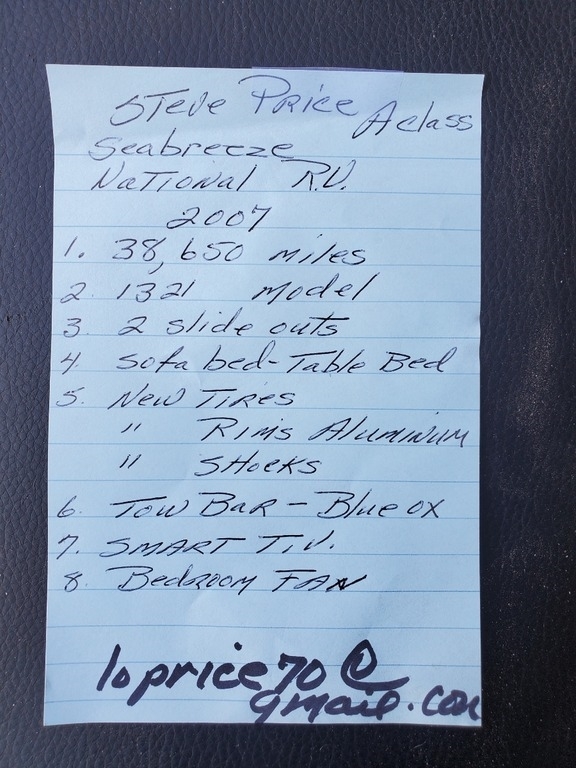 Steve Price A class
Seabreeze
National R.V.
2007
1. 38,650 miles
2. 1321 Model
3. 2 slide outs
4. Sofa bed - Table Bed
5. New Tires
" Rims Aluminum
" Shocks
6. Tow Bar - Blue ox
7. SMART T.V.
8. Bedroom FAN
loprice70@
gmail.com